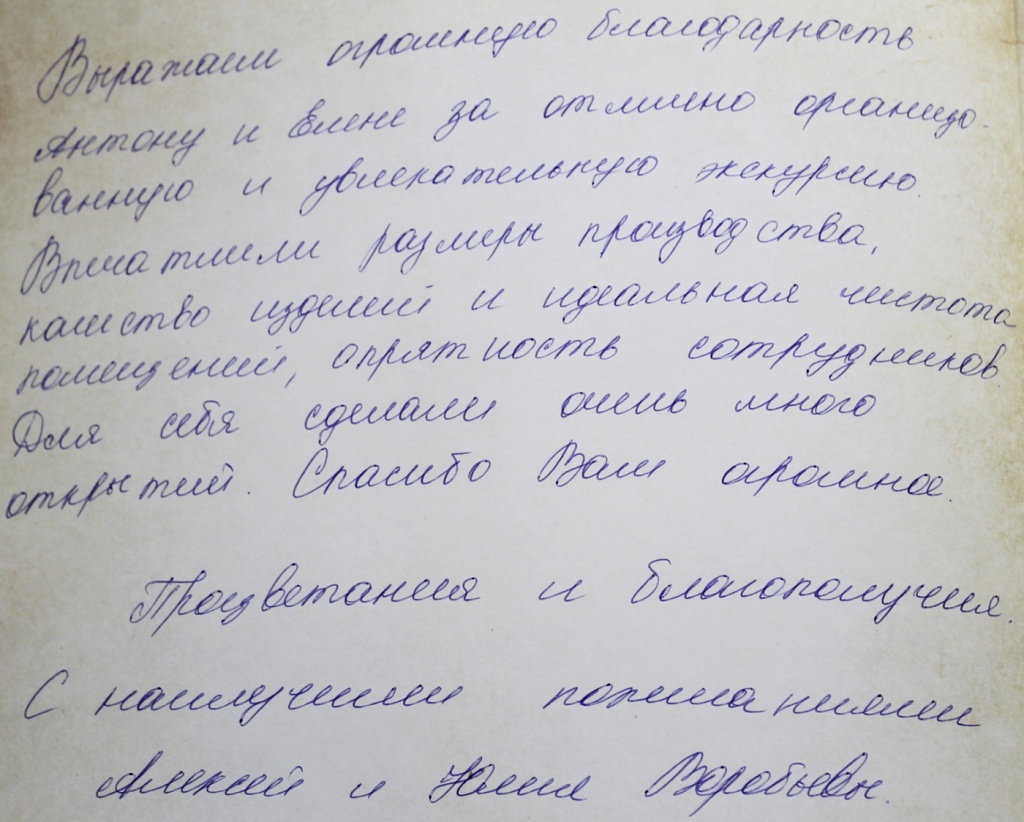 Выражаем огромную благодарность
Антону и Елене за отлично организо-
ванную и увлекательную экскурсию.
Впечатлили размеры производства,
качество изделий и идеальная чистота
помещений, опрятность сотрудников.
Для себя сделали очень много
открытий. Спасибо Вам огромное.
Процветания и благополучия.
С наилучшими пожеланиями
Алексей и Юлия Воробьевы.